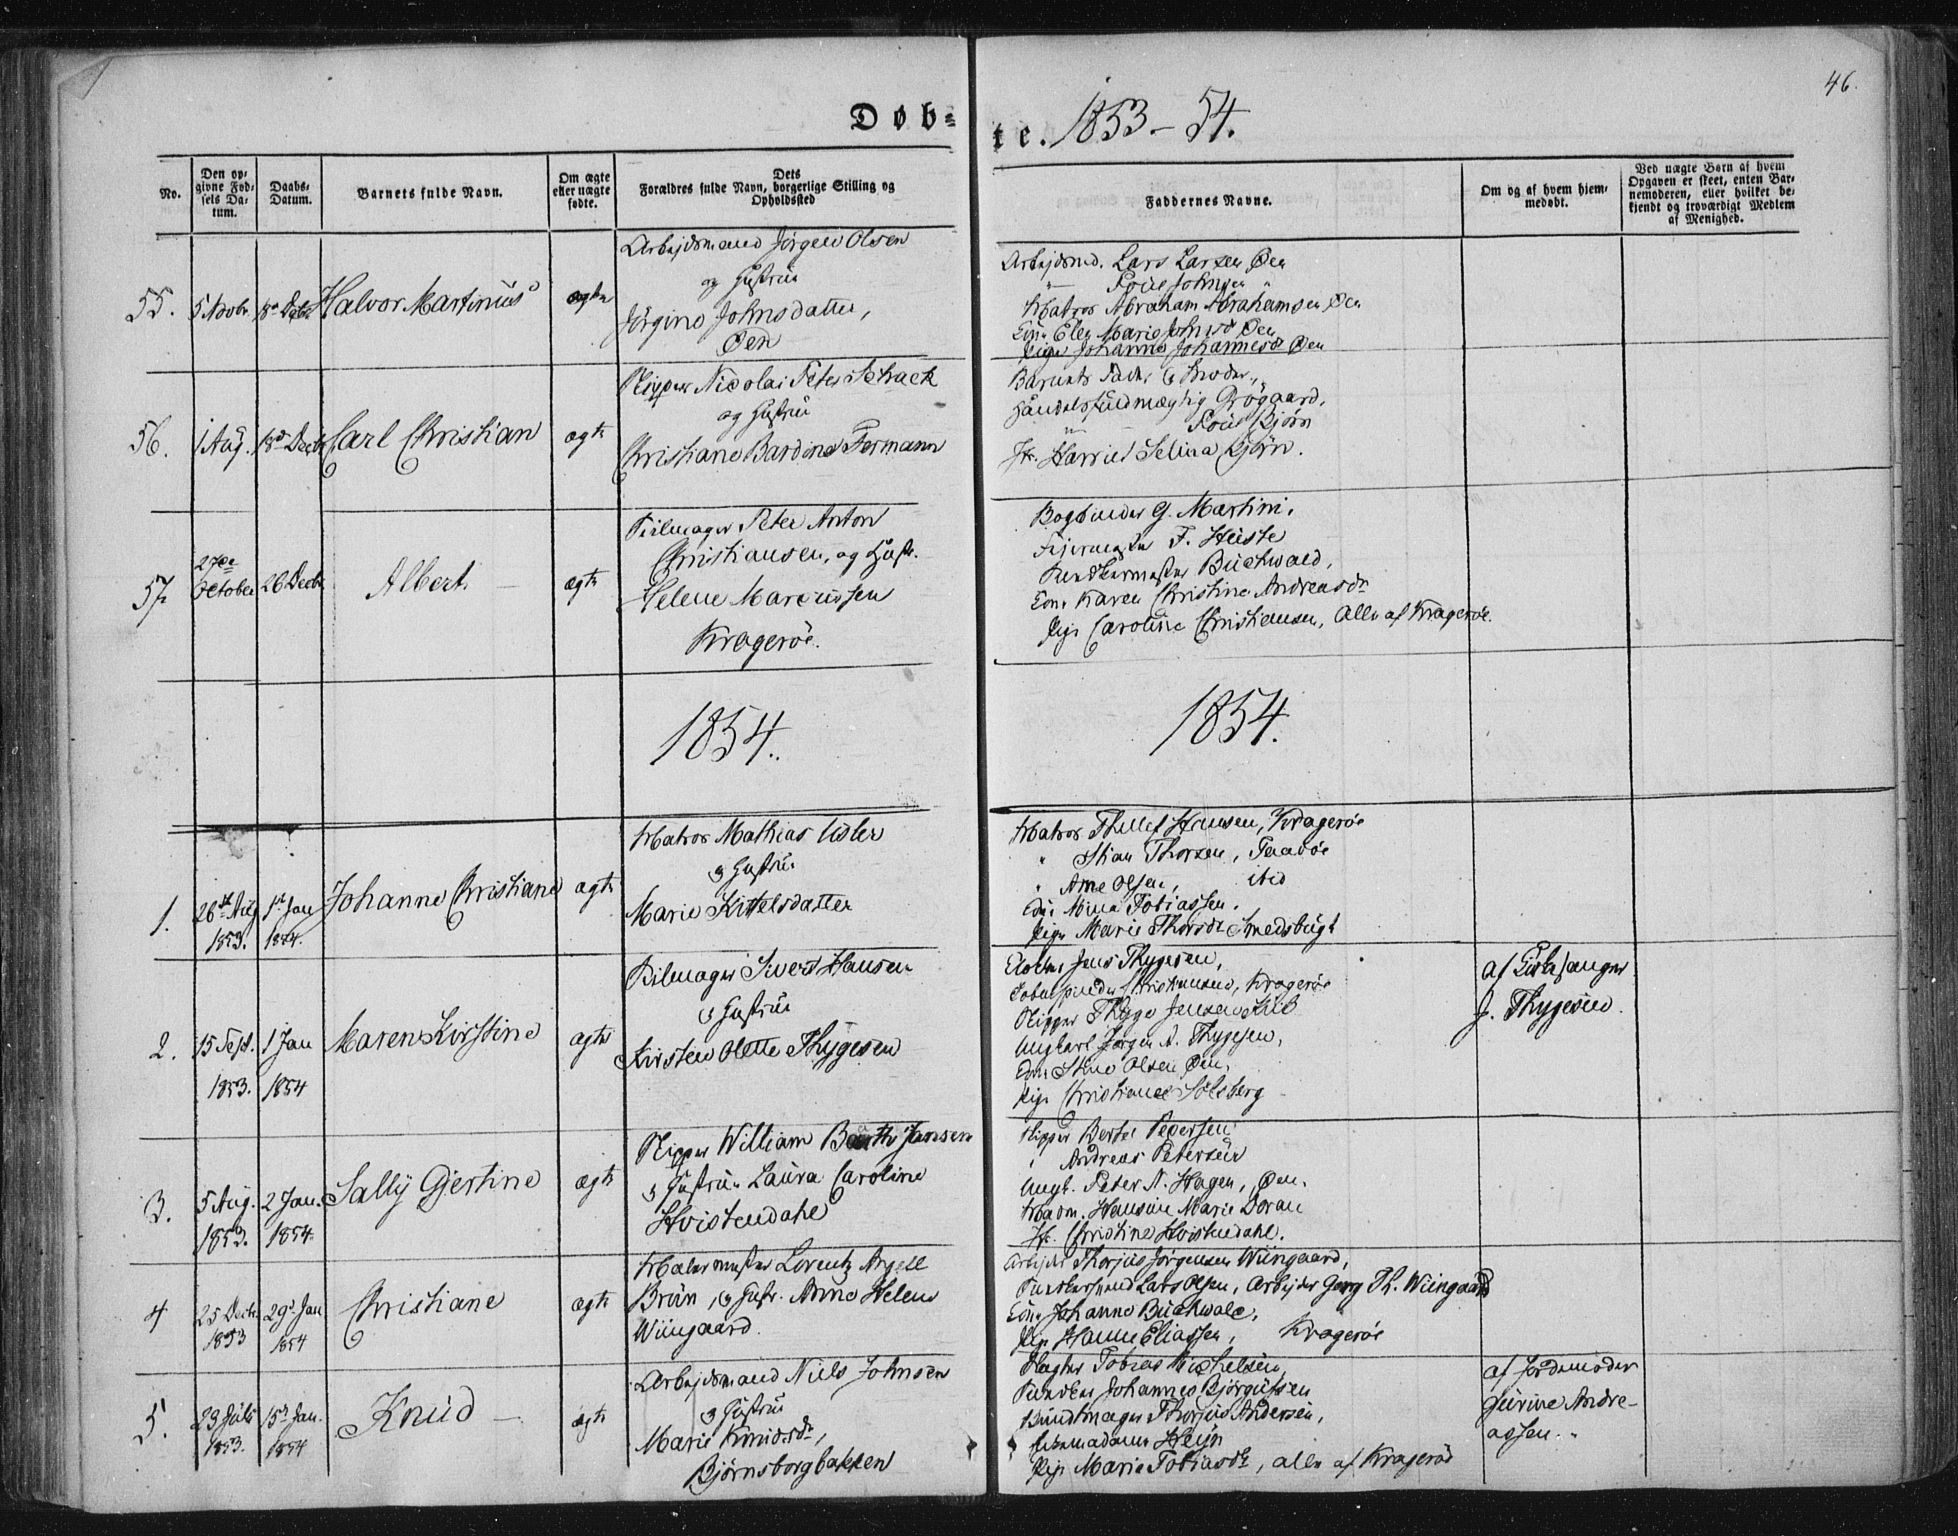 46.
Døb=
te. 1853-54.
No.
Den op-
givne Fød-
sels Da-
tum.
Daabs-
Datum.
Barnets fulde Navn.
Om ægte
eller uægte
fødte.
Dets
Forældres fulde Navn, borgerlige Stilling og
Opholdssted
Faddernes Navne.
Om og af hvem hjem-
medøbt.
Ved uægte Børn af hvem
Opgaven er skeet, enten Bar-
nemoderen, eller hvilket be-
kjendt og troværdigt Medlem
af Menighed.
55.
5 Novbr.
18de Decbr
Halvor Martinius
ægte
Arbejdsmand Jørgen Olsen
og Hustrue
Jørgine Johnsdatter,
Øen
Arbejdsmd. Lars Larsen Øen
" Johnsen "
Matros Abraham Abrahamsen Øen
Ene Elen Marie Johnsd Øen
Pige Johanne Johannesdr Øen
56.
1 Aug.
18de Decbr
Carl Christian
ægte
Skipper Nicolai Peter Schack
og Hustrue
Christiane Bardine Formann
Barnets Fader & Broder,
Handelsfuldmægtig Grøgaard,
" Bjørn
Jfr. Harriet Selina Bjørn.
57.
27de
October
26 Decbr
Albert
ægte
Peter Anton
Christiansen, og Hustr.
Helene Marcussen
Kragerøe.
Bogbinder G. Martini,
F. Heiste
Buchwald,
Kone Karen Christine Andreasdr
Pige Caroline Christiansen, Alle af Kragerøe.
1854.
1854.
1.
26de Aug
1853.
1ste Jan
1854.
Johanne Christiane
ægte
Matros Mathias Usler
& Hustrue
Marie Kittelsdatter
Matros Thellef Hansen, Kragerøe
" Stian Thorsen, Taatøe
" Arne Olsen, ibid
Kone Mina Tobiassen.
Pige Marie Thorsdr Smedsbugt
2.
15 Sept.
1853.
1 Jan
1854
Maren Kirstine
ægte
Bilmager Siver Hansen
& Hustrue
Kirsten Olette Thygesen
Jens Thygesen,
Christensen, Kragerøe
Skipper Thyge Jensen
Ungkarl Jørgen A. Thygesen,
Kone Stine Olsen Øen,
Pige Christiane Solsberg
af Kirkesanger
J. Thygesen.
3.
5 Aug.
1853.
2 Jan.
1854.
Sally Gjertine
ægte
Skipper William Barth Jansen
& Hustrue Laura Caroline
Hvistendahl
Skipper Berte Petersen
" Andreas Petersen
Ungk. Peter N. Hagen, Øen.
Madm. Hansine Marie Doran
Jfr. Christine Hvistendahl.
4
25 Decbr.
1853
29de Jan
1854
Christiane
ægte
Malermester Lorentz Angell
Brün, & Hustr. Anne Helene
Wiingaard.
Arbejder Thorjus Jørgensen Wiingaard,
Lars Olsen, Arbejder Georg Th. Wiingaard
Kone Johanne Buchwald,
Pige Hanne Eliassen, Kragerøe
5.
23 Juli
1853.
15de Jan.
1854
Knüd
ægte
Arbejdsmand Niels Johnsen
& Hustrue
Marie Knudsdr,
Bjørnsborgbakken
Slagter Tobias Michelsen
Johannes Bjørgufsen
Bundtmager Thorjus Andersen,
Heijn
Pige Maria Tobiasdr, alle af Kragerøe
af Jordemoder
Gurine Andre-
assen.